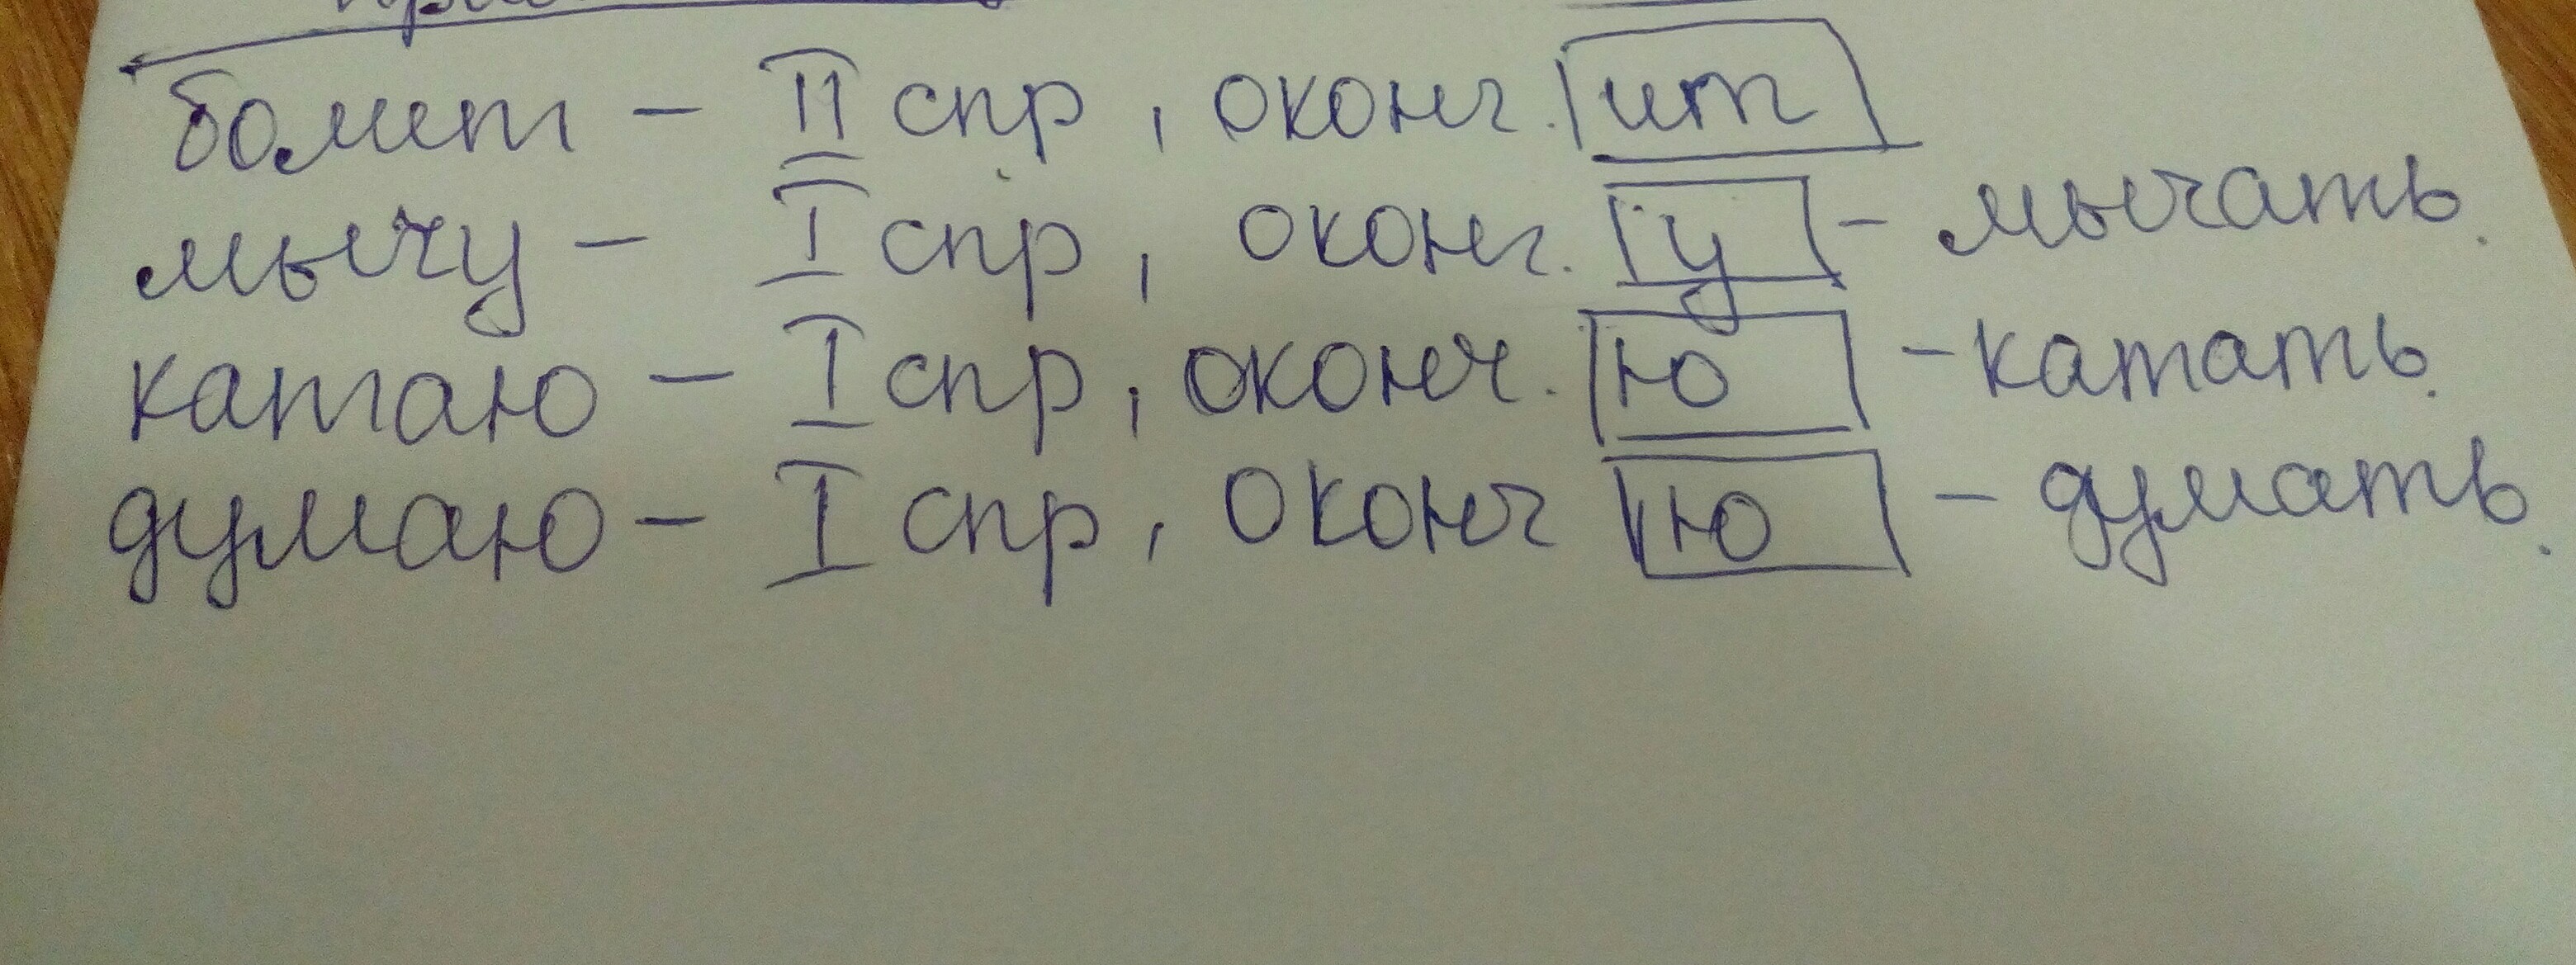 болит - II спр, оконч. ит
мычу - I спр, оконч. у - мычать.
катаю - I спр, оконч. ю - катать.
думаю - I спр, оконч ю - думать.